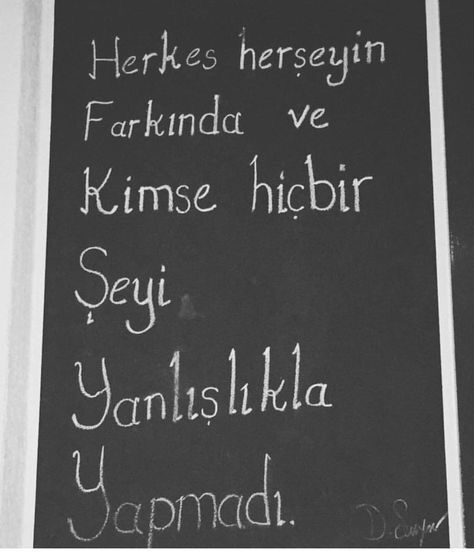 Herkes herşeyin
Farkında ve
Kimse hiçbir
Şeyi
Yanlışlıkla
Yapmadı.